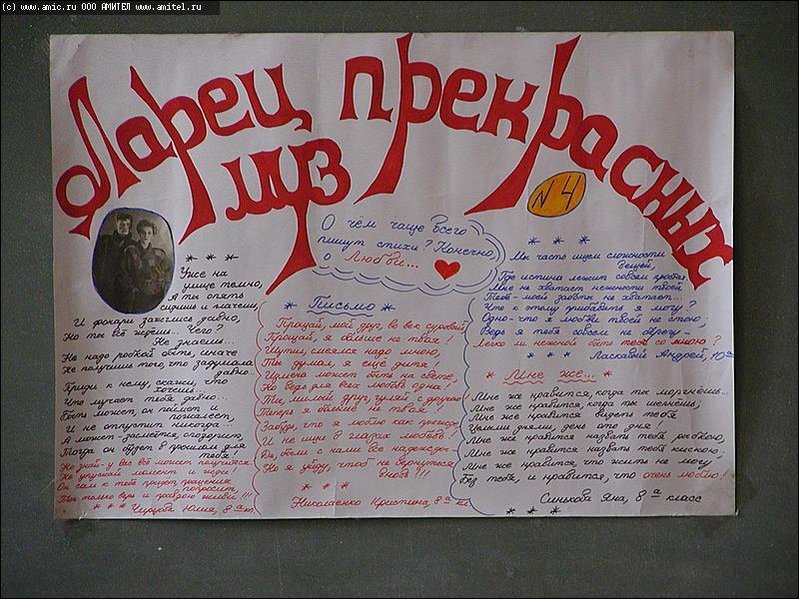 (c) www.amic.ru ООО АМИТЕЛ www.amitel.ru
Ларец прекрасных
муз
N 4
О чём чаще всего
пишут стихи? Конечно,
о Любви...
* * *
Уже на
улице темно,
А ты опять
сидишь и плачешь,
И фонари зажглись давно,
Но ты всё ждёшь... Чего?
Не знаешь...
Не надо робкой быть, иначе
Не получишь того, что задумала
давно.
Приди к нему, скажи, что
хочешь
Что мучает тебя давно...
Быть может, он поймет и
пожалеет,
И не отпустит никогда...
А может - засмеётся,
Тогда он будет в прошлом для
тебя!
Но знай - у вас всё может получиться.
Не упускай момент, жди!
Он сам к тебе придет, прощения
попросит,
Ты только верь и правдою живи!!!
* * * Юлия, 8 а кл.
* Письмо *
Прощай, мой друг, во век суровый
Прощай, я больше не твоя!
Шутил, смеялся надо мною,
Ты думал, я ещё дитя!
Измена может быть на свете,
Но ведь для всех любовь одна!
Так, милый друг, гуляй с другою
Теперь я больше не твоя!
Забудь, что я люблю как прежде
И не ищи в глазах любовь
Да, были с нами все надежды
Но я уйду, чтоб не вернуться
вновь!!!
* * *
Николаенко Кристина, 8 а кл
* * *
Мы часто ищем сложности
вещей,
Где истина лежит совсем простая
Мне не хватает нежности твоей,
Тебе - моей заботы не хватает...
Что к этому прибавить я могу?
Одно - что я любви твоей не стою;
Ведь я тебя совсем не берегу -
Легко ли нежной быть тебе со мною?
* * * Ласкавый Андрей, 10
* Мне же... *
Мне же нравится, когда ты моргаешь...
Мне же нравится, когда ты шепчешь,
Мне же нравится видеть тебя
Целыми днями, день ото дня!
Мне же нравится назвать тебя рыбкою,
Мне же нравится назвать тебя кискою,
Мне же нравится, что жить не могу
Без тебя, и нравится, что очень люблю!
Синькова Яна, 8 а класс
* * *